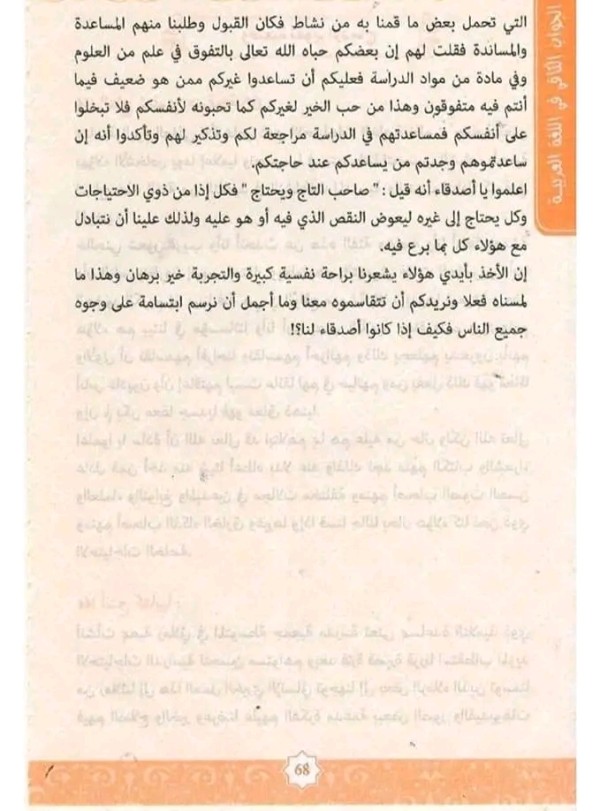 الجواب الكافي في اللغة العربية
التي تحمل بعض ما قمنا به من نشاط فكان القبول وطلبنا منهم المساعدة
والمساندة فقلت لهم إن بعضكم حباه الله تعالى بالتفوق في علم من العلوم
وفي مادة من مواد الدراسة فعليكم أن تساعدوا غيركم ممن هو ضعيف فيما
أنتم فيه متفوقون وهذا من حب الخير لغيركم كما تحبونه لأنفسكم فلا تبخلوا
على أنفسكم فمساعدتهم في الدراسة مراجعة لكم وتذكير لهم وتأكدوا أنه إن
ساعدتموهم وجدتم من يساعدكم عند حاجتكم.
اعلموا يا أصدقاء أنه قيل : " صاحب التاج ويحتاج " فكل إذا من ذوي الاحتياجات
وكل يحتاج إلى غيره ليعوض النقص الذي فيه أو هو عليه ولذلك علينا أن نتبادل
مع هؤلاء كل بما برع فيه.
إن الأخذ بأيدي هؤلاء يشعرنا براحة نفسية كبيرة والتجربة خير برهان وهذا ما
لمسناه فعلا ونريدكم أن تتقاسموه معنا وما أجمل أن نرسم ابتسامة على وجوه
جميع الناس فكيف إذا كانوا أصدقاء لنا؟!
68